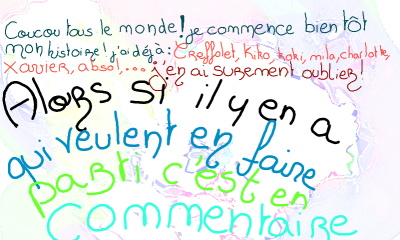 Coucou tous le monde! je commence bientôt
mon histoire! j'ai déjà: Creffolet, Kiko, koki, mila, charlotte,
Xavier, absol,... j'en ai surement oublier!
Alors si il y en a
qui veulent en faire
parti c'est en
commentaire